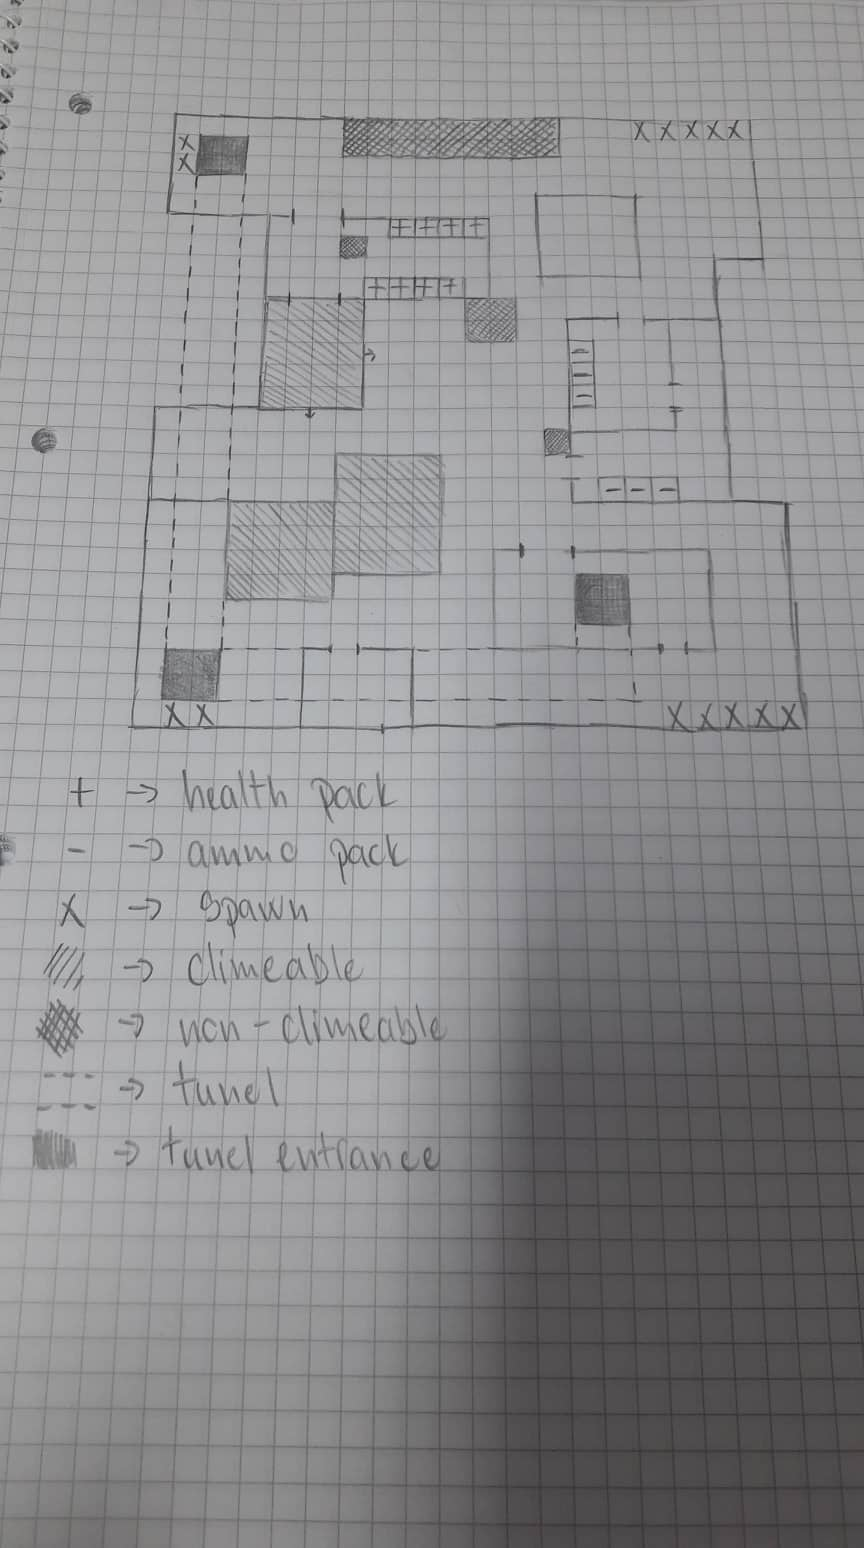 X X X X X
X
X
+ + + +
+ + + +
-
-
-
- - -
X X
X X X X X
+ -> health pack
- -> ammo pack
X -> spawn
-> climeable
-> non-climeable
-> tunel
-> tunel entrance